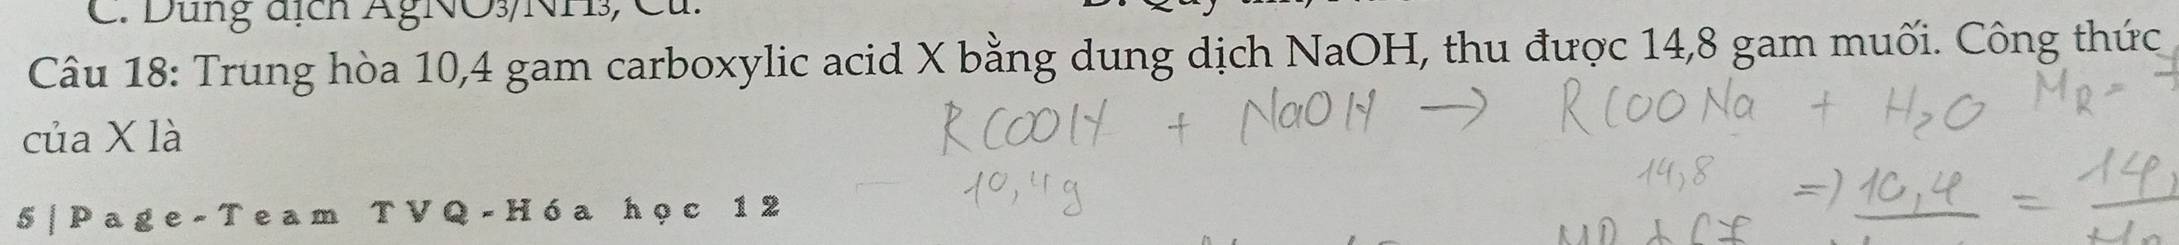 C. Dung dịch AgNO₃/NH₃, Cu.
Câu 18: Trung hòa 10,4 gam carboxylic acid X bằng dung dịch NaOH, thu được 14,8 gam muối. Công thức
của X là
RCOOH + NaOH → RCOONa + H₂O M_R =
10,4g 14,8 => 10,4 = 14,
5 | Page - Team TVQ - Hóa học 12